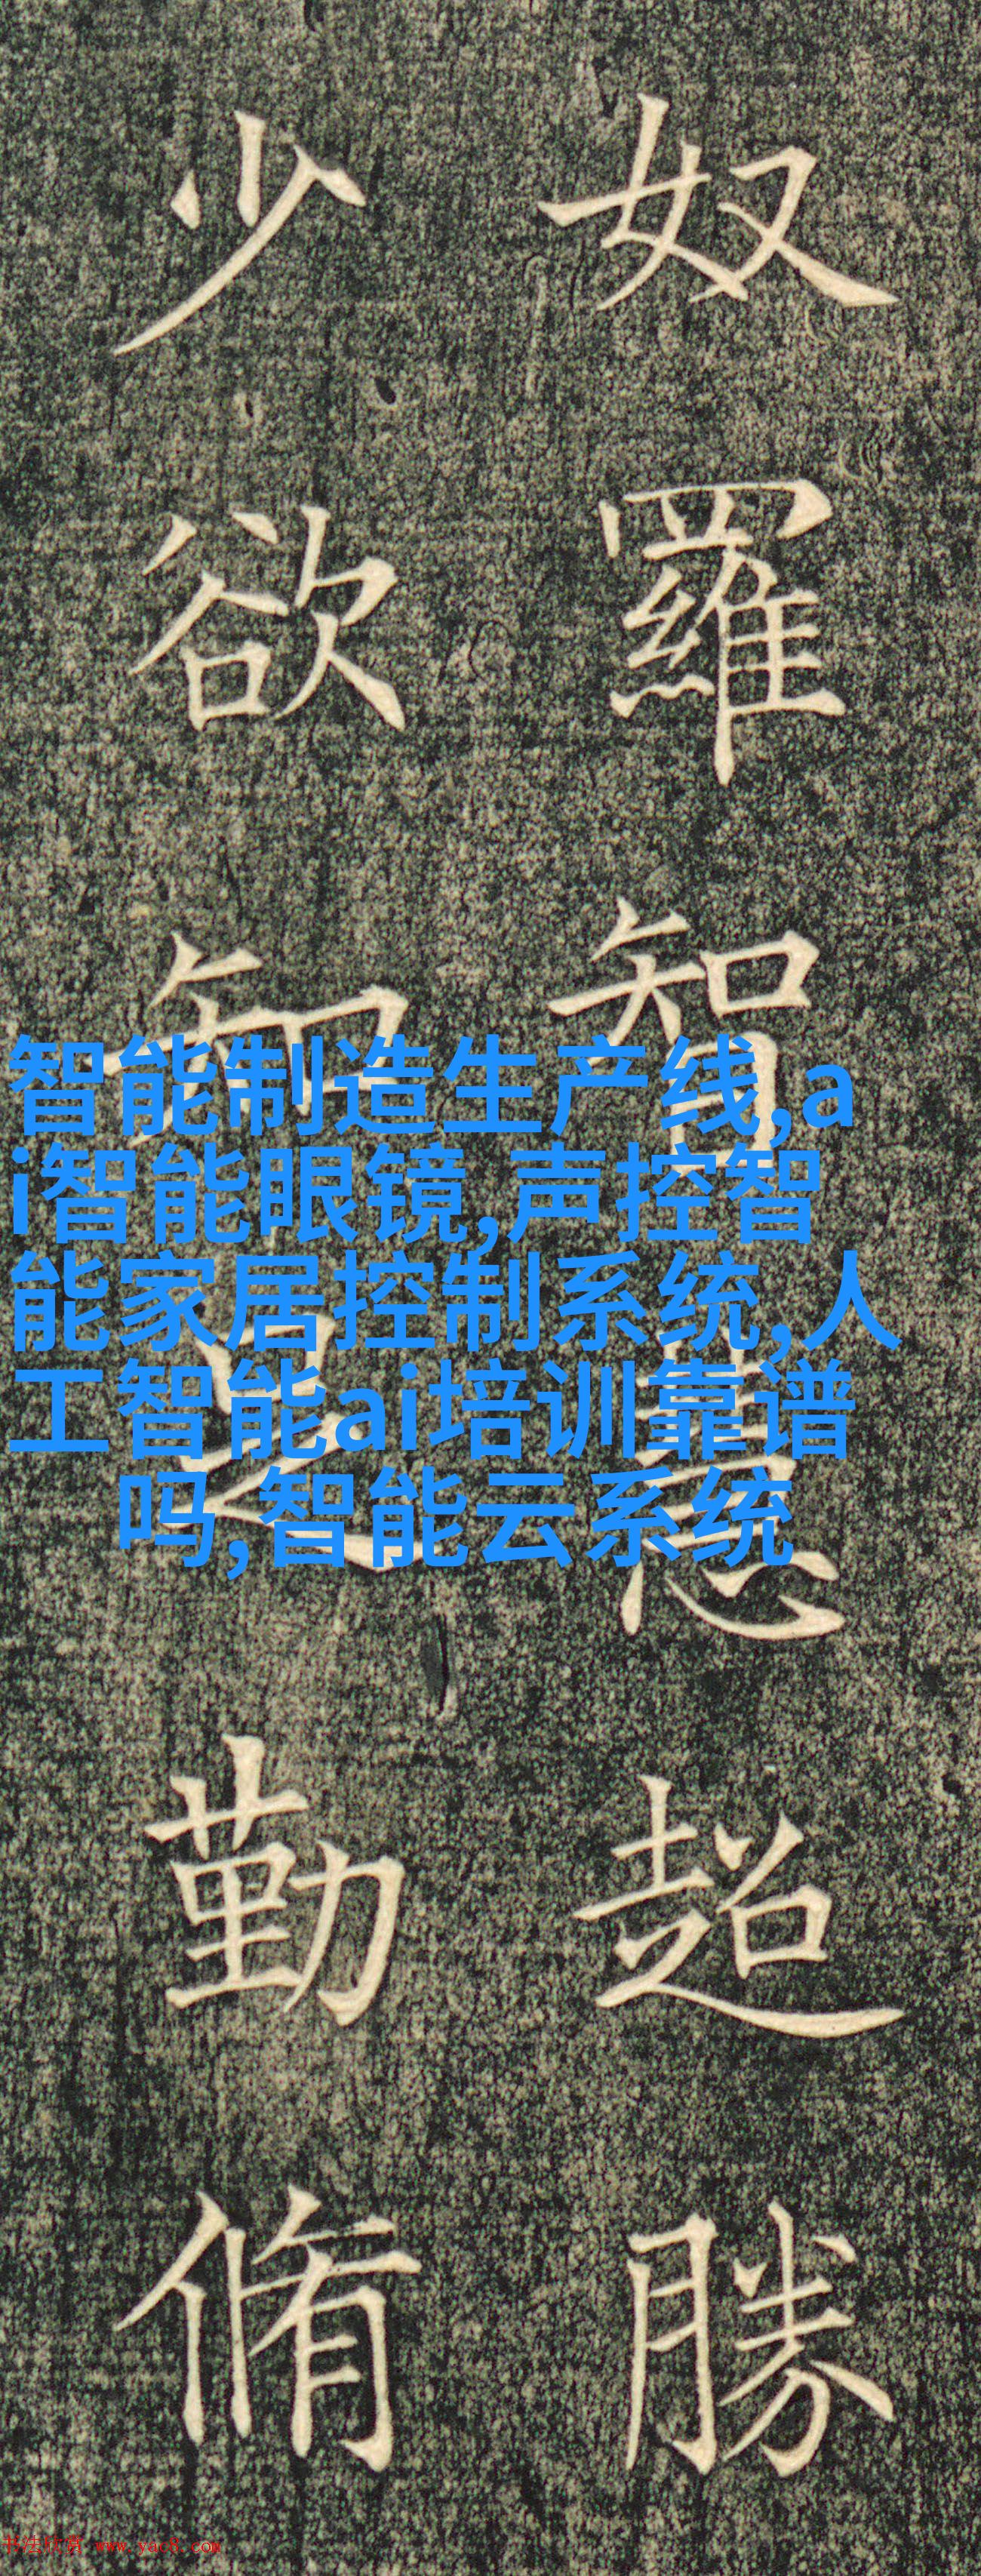 奴羅智慧超勝
少欲知足勤脩
智能制造生产线,a
i智能眼镜,声控智
能家居控制系统,人
工智能ai培训靠谱
吗,智能云系统
书法欣赏 www.yac8.com